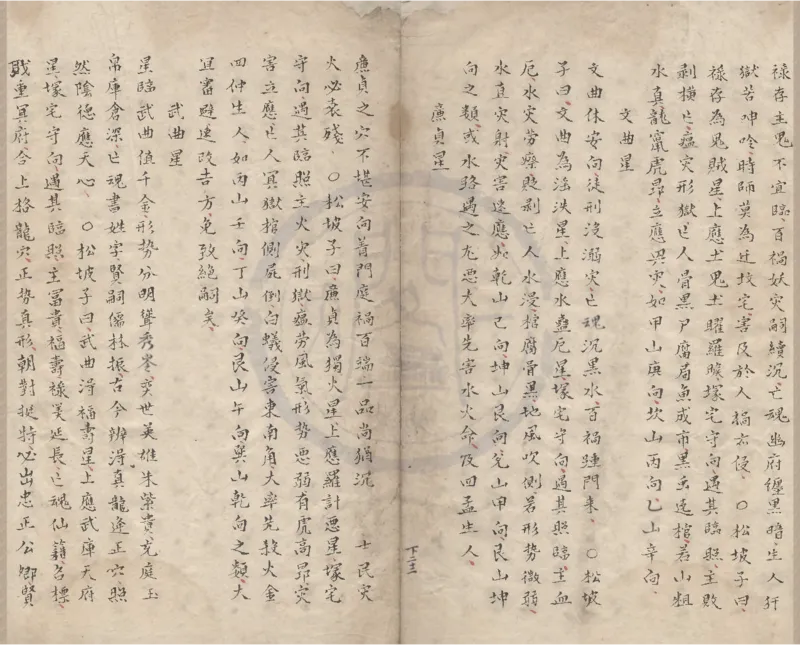 祿存主鬼不宜臨、百禍妖災嗣續沉、亡魂幽府纏黑暗、生人犴
獄苦呻吟、時師莫為迁坟宅、害及於人禍亦侵、○松坡子曰、
祿存為鬼賊星、上應土鬼土曜羅睺、塚宅守向遇其臨照、主敗
剥横亡、瘟灾形獄、亡人骨黑尸腐、局魚成市、黒虫遶棺、若山粗
水真、龍竄虎昂、立應異灾、如甲山庚向、坎山丙向、乙山辛向、
文曲星
文曲休安向、徒刑没溺灾、亡魂沉黑水、百禍踵門來、○松坡
子曰、文曲為滛泆星、上應水孛厄星、塚宅守向、遇其照臨、主血
厄、水灾劳瘵貶剥、亡人水浸、棺腐骨黑、地風吹側、若形势微弱、
水直灾射、灾害速應、如乾山己向、坤山艮向、兌山甲向、艮山坤
向之類、或水路遇之、尤惡、大率先害水火命、及四孟生人、
廉貞星
廉貞之穴不堪安、向着門庭禍百端、一品尚猶沉 士民灾
火必衰殘、○松坡子曰、廉貞為獨火星、上應羅計惡星、塚宅
守向遇其臨照、主火灾刑獄、瘟劳風氣、形势悪弱、有虎高昂、灾
害立應、亡人冥獄、棺側屍倒、白蟻侵害東南角、大率先殺火金
四仲生人、如丙山壬向、丁山癸向、艮山午向、巽山乾向之類、大
宜審避、速改吉方、免致絕嗣矣、
武曲星
星臨武曲值千金、形势分明聳秀岑、奕世英雄朱紫貴、充庭玉
帛庫倉深、亡魂書姓字、賢嗣儒林振古今、辨淂真龍逢正穴、照
然陰德應天心、○松坡子曰、武曲淂福壽星、上應武庫天府
星、塚宅守向、遇其臨照、主冨貴、福壽祿美延長、亡魂仙籍名標、
戝重冥府、合上格龍穴、正势真形、朝對挺特、必出忠正公卿、賢
下二三